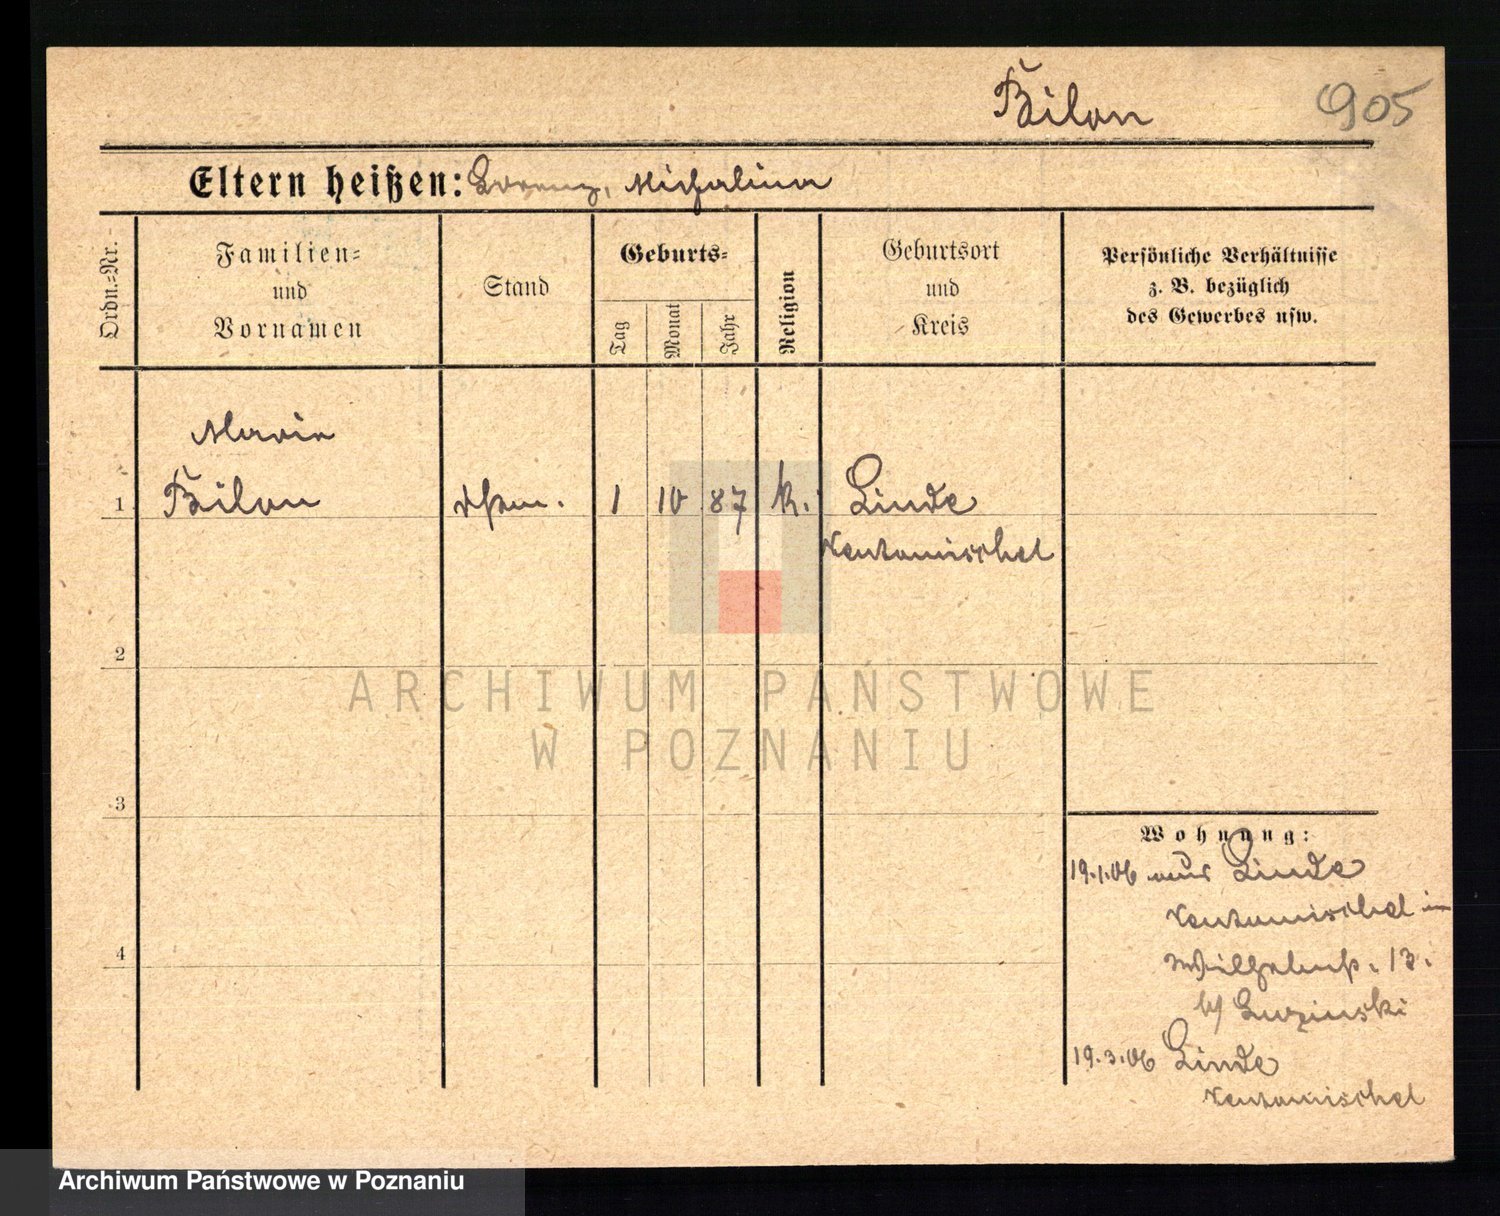 Bilan 905
Eltern heißen: Lorenz, Michalina
Ordn.=Nr.
Familien=
und
Vornamen
Stand
Geburts=
Tag
Monat
Jahr
Religion
Geburtsort
und
Kreis
Persönliche Verhältnisse
z. B. bezüglich
des Gewerbes usw.
Maria
1 Bilan 1 10 87 k. Linde
Neutomischel
2
3
4
Wohnung:
19.1.06 aus Linde
Neutomischel in
Wilhelmstr. 13.
b/
19.3.06 Linde
Neutomischel
ARCHIWUM PAŃSTWOWE
W POZNANIU
Archiwum Państwowe w Poznaniu